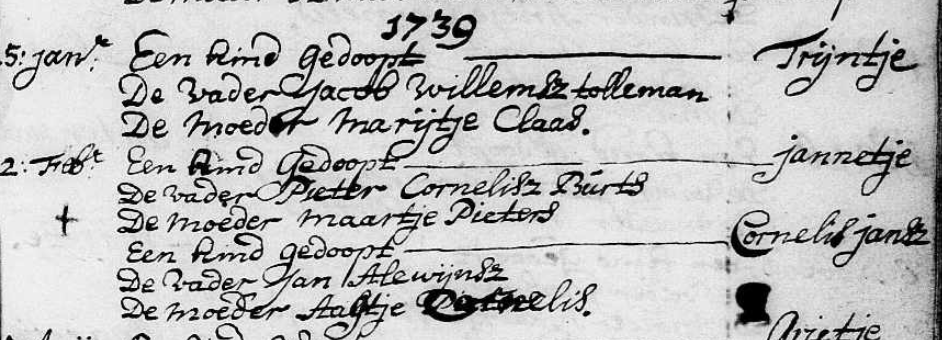 1739
5: janr: Een kind Gedoopt Trijntje
De vader Jacob Willemsz tolleman
De Moeder Marijtje Claas.
2: Febr: Een kind Gedoopt jannetje
De vader Pieter Cornelisz Bürts
De moeder maartje Pieters
Een kind gedoopt Cornelis jansz
De vader Jan Alewijnsz
De moeder Aaltje Cornelis.
Grietje